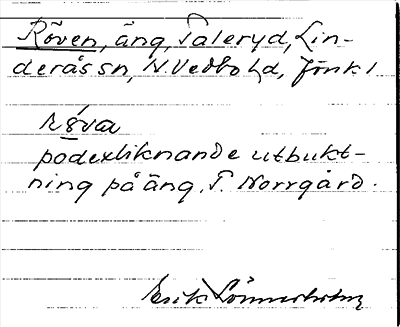 Röven, äng, Taleryd, Lin-
deråssn, N. Vedbo hd, Jönk l
röva
podexliknande utbukt-
ning på äng. T. Norrgård.
Erik Lönnerholm